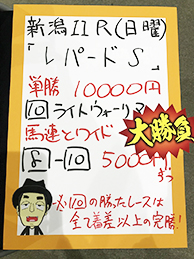 新潟11R(日曜)
「レパードS」
単勝 10000円
10 ライトウォーリア
馬連とワイド
大勝負
8-10 5000円
ずつ
※10の勝ったレースは
全て着差以上の完勝!